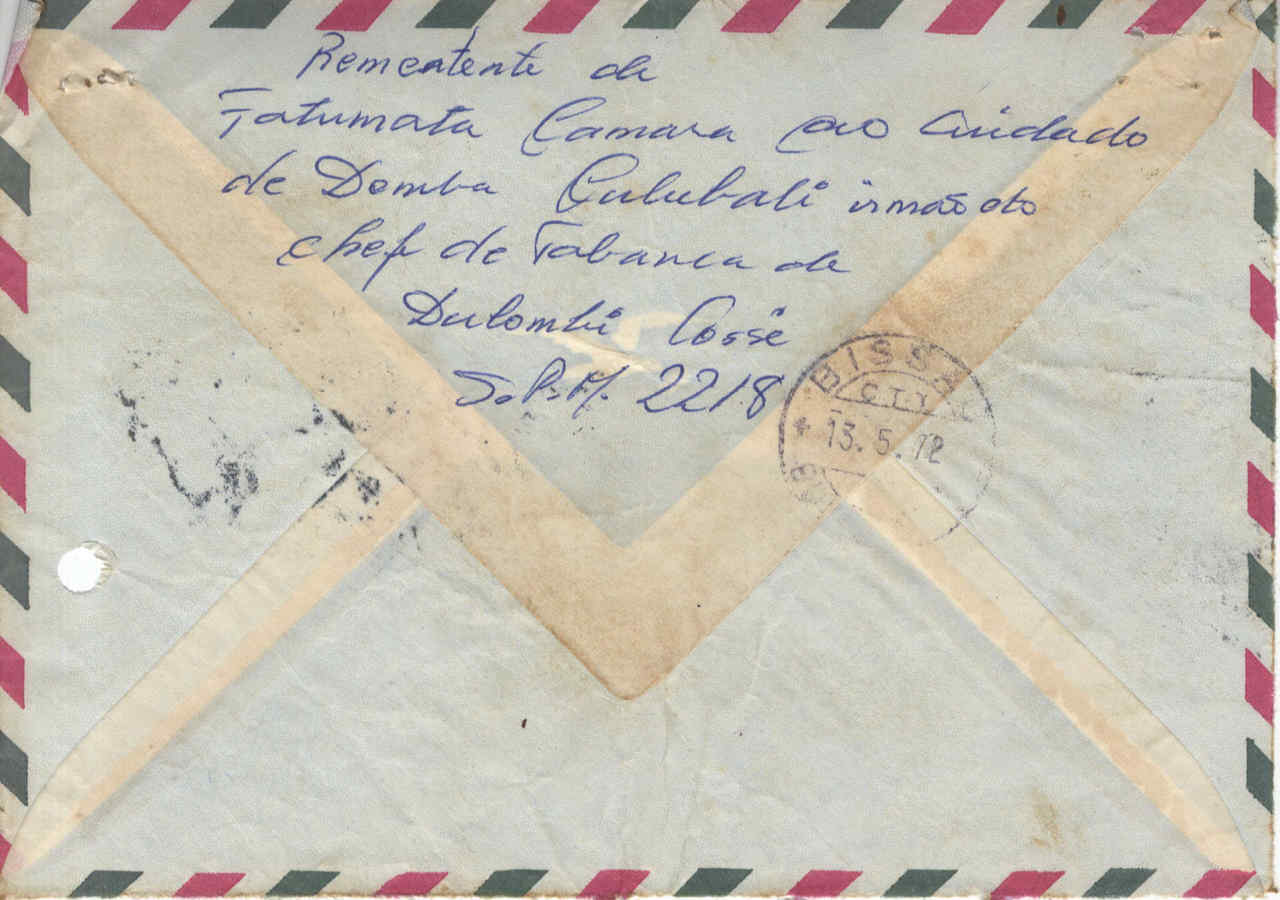 Rementente de
Fatumata Camara ao Cuidado
de Demba Culubali irmão do
chef de Tabanca de
Dulombi Cossé
S.P.M. 2218
BISSA
C T T
13. 5. 72